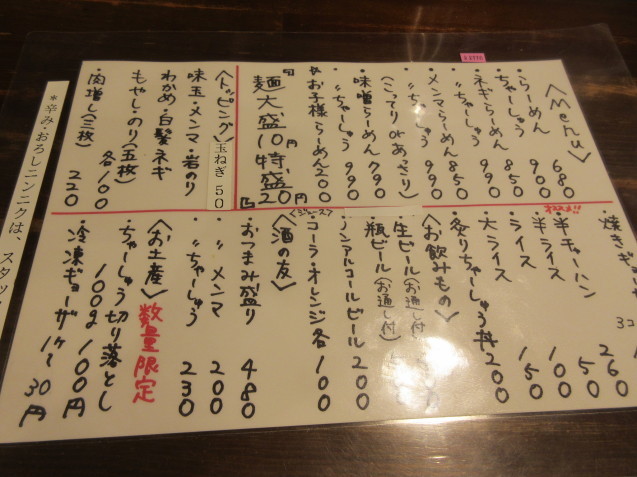 〈Menu〉
・らーめん 680
・ちゃーしゅう 900
・ネギらーめん 850
・〃ちゃーしゅう 990
・メンマらーめん 850
・〃ちゃーしゅう 990
(こってり or あっさり)
・味噌らーめん 790
・〃ちゃーしゅう 990
・お子様らーめん 200
麺大盛10円
特盛20円
〈トッピング〉
玉ねぎ 50
味玉・メンマ・岩のり
わかめ・白髪ネギ
もやし・のり(五枚)
各100
・肉増し(三枚) 220
焼きギョーザ
・半チャーハン 260
・半ライス 50
・ライス 100
・大ライス 150
・炙りちゃーしゅう丼 200
〈お飲みもの〉
・生ビール(お通し付)
・瓶ビール(お通し付)
ノンアルコールビール 200
・コーラ・オレンジ 各100
〈ジュース〉
〈酒の友〉
・おつまみ盛り 480
・〃メンマ 200
・〃ちゃーしゅう 230
〈お土産〉数量限定
・ちゃーしゅう切り落とし
100g 100円
・冷凍ギョーザ 1ケ 30円
*辛み・おろしニンニクは、スタッ